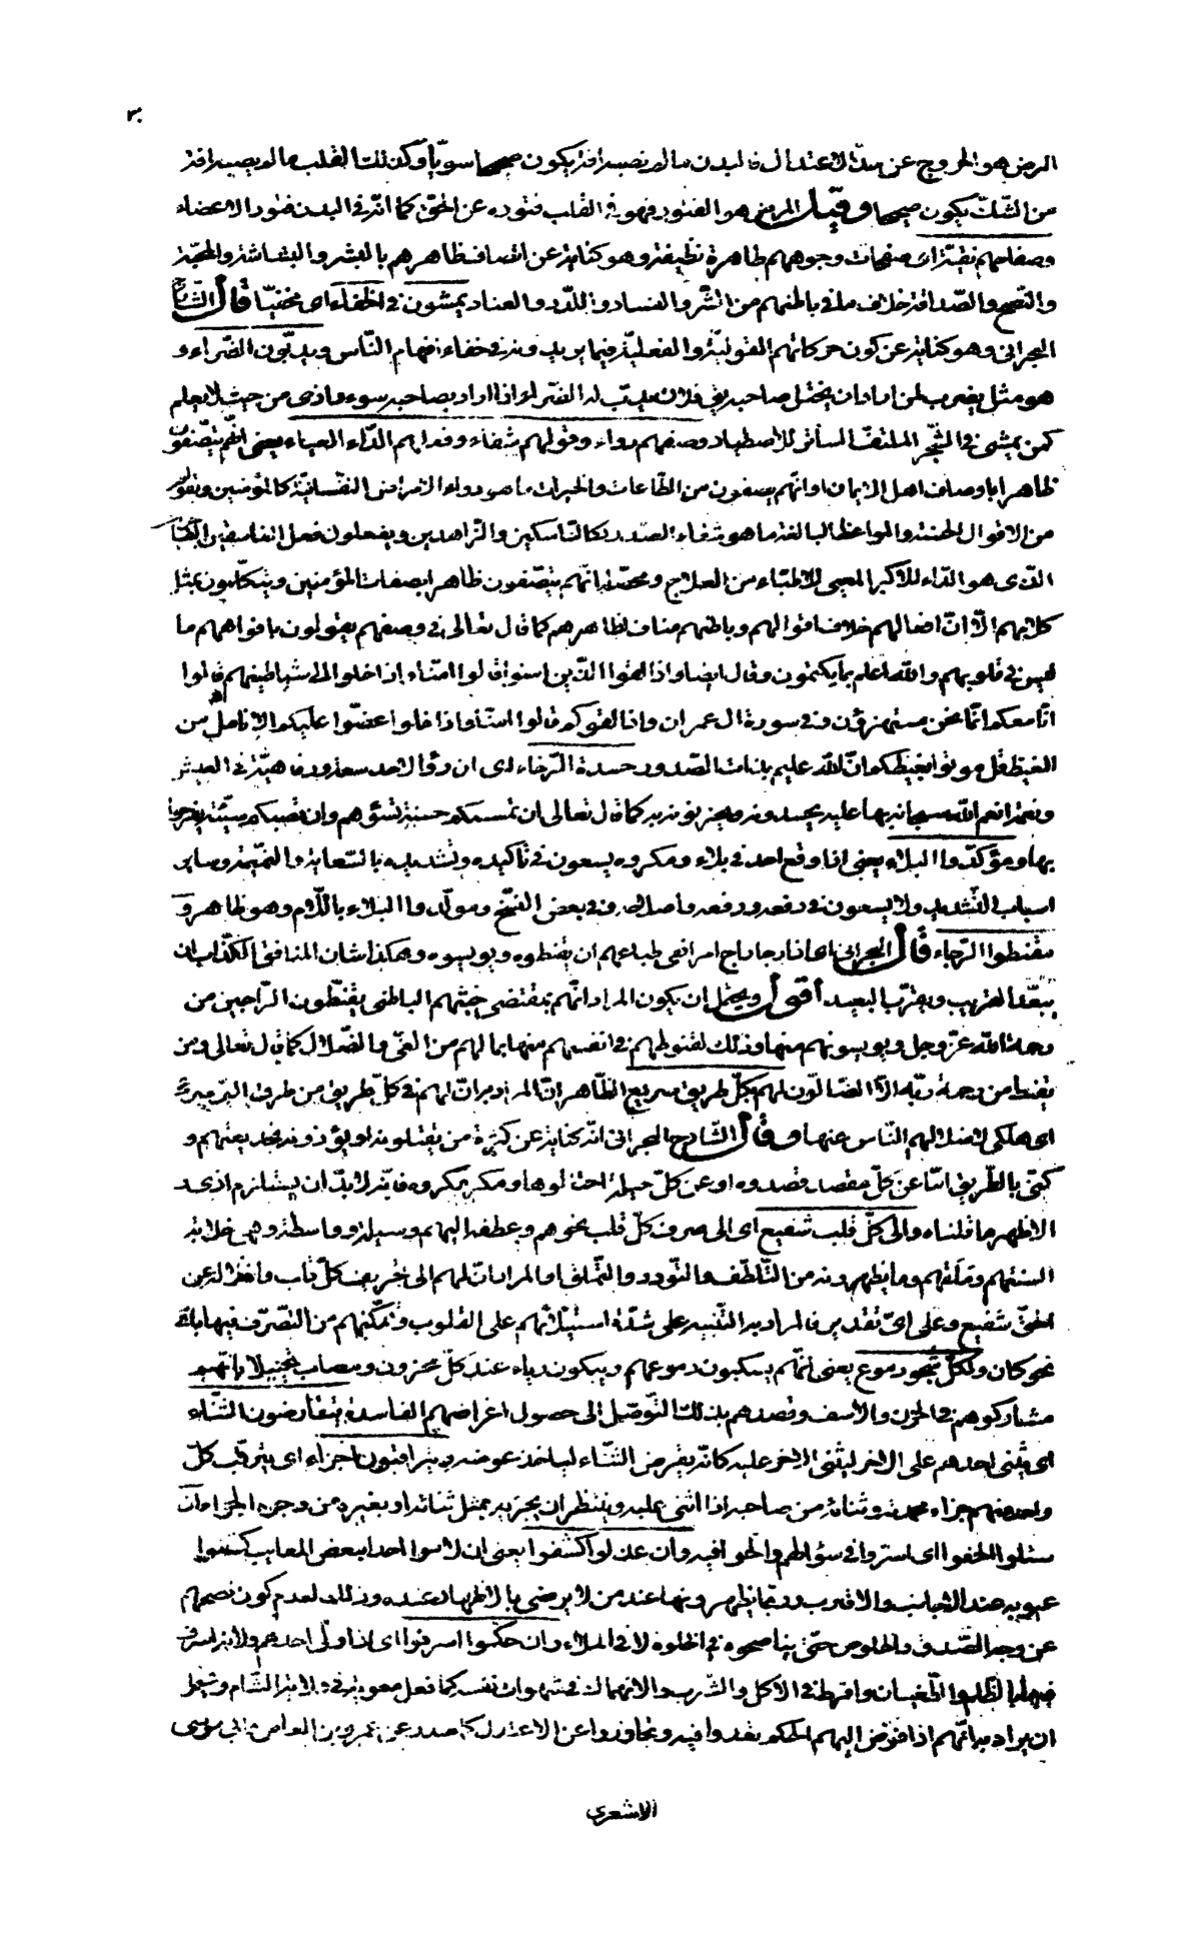 المرض هو الخروج عن حدّ الاعتدال فالبدن ما لم يصبه افة يكون صحيحا سويّا وكذلك القلب ما لم يصبه افة
من الشّك يكون صحيحا وقيل المرض هو الفتور فهو في القلب فتوره عن الحقّ كما انّه في البدن فتور الاعضاء
وصفاحهم نقيّة اى صفحات وجوههم طاهرة نظيفة وهو كناية عن اتصاف ظاهرهم بالبشر والبشاشة والمحبّة
والنّصح والصّداقة خلاف ما في باطنهم من الشّر والفساد واللّدد والعناد يمشون في الخفاء اى مختفيا قال الشّارح
البحرانى وهو كناية عن كون حركاتهم القوليّة والفعليّة فيما يريدونه في خفاء افهام النّاس ويدبّون الضّراء و
هو مثل يضرب لمن اراد ان يختل صاحبه يق فلان يدبّ له الضّراء اذا اراد بصاحبه سوء واذى من حيث لا يعلم
كمن يمشى في الشّجر الملتفّ الساتر للاصطياد وصفهم دواء وقولهم شفاء وفعلهم الدّاء العياء يعنى انّهم يتّصفون
ظاهرا باوصاف اهل الايمان او انّهم يصفون من الطّاعات والخيرات ما هو دواء الامراض النّفسانيّة كالمؤمنين ويقولون
من الاقوال الحسنة والمواعظ البالغة ما هو شفاء الصّدور كالنّاسكين والزّاهدين ويفعلون فعل الفاسقين
الّذى هو الدّاء الاكبر المعيى للاطبّاء من العلاج ومحصّله انّهم يتّصفون ظاهرا بصفات المؤمنين ويتكلّمون بمثل
كلامهم الّا انّ افعالهم خلاف اقوالهم وباطنهم مناف لظاهرهم كما قال تعالى في وصفهم يقولون بافواههم ما
ليس في قلوبهم والله اعلم بما يكتمون وقال ايضا واذا لقوا الّذين امنوا قالوا امنّا واذا خلوا الى شياطينهم قالوا
انّا معكم انّما نحن مستهزؤن وفي سورة ال عمران واذا لقوكم قالوا امنّا واذا خلوا عضّوا عليكم الانامل من
الغيظ قل موتوا بغيظكم انّ الله عليم بذات الصّدور حسدة الرّخاء اى ان رؤا لاحد سعة ورفاهيّة في العيش
ونعمة انعم الله سبحانه بها عليه يحسدونه ويحزنون به كما قال تعالى ان تمسسكم حسنة تسؤهم وان تصبكم سيّئة يفرحوا
بها ومؤكّدوا البلاء يعنى اذا وقع احد في بلاء ومكروه يسعون في تاكيده وتشديده بالسّعاية والنّميمة وساير
اسباب التّشديد ولا يسعون في دفعه ورفعه واصلاحه وفي بعض النّسخ ومولّدوا البلاء باللّام وهو ظاهر و
مقنطوا الرّجاء قال البحرانى اى اذا رجا راج امرا ففى طباعهم ان يقنطوه ويويسوه وهكذا شان المنافق الكذّاب ان
يبعّد القريب ويقرّب البعيد اقول ويحتمل ان يكون المراد انّهم بمقتضى خبثهم الباطنى يقنّطون الرّاجين من
رحمة الله عزّ وجل ويويسونهم منها وذلك لقنوطهم في انفسهم منها بما لهم من الغىّ والضّلال كما قال تعالى ومن
يقنط من رحمة ربّه الّا الضّالّون لهم بكلّ طريق صريع الظّاهر انّ المراد به انّ لهم في كلّ طريق من طرق البرّ صريع
اى هلكى لاضلالهم النّاس عنها وقال الشّارح البحرانى انّه كناية عن كثرة من يقتلونه او يؤذونه بخديعتهم و
كنّى بالطّريق امّا عن كلّ مقصد قصدوه او عن كلّ حيلة احتالوها ومكر مكروه فانّه لا بدّ ان يستلزم اذى
الاظهر ما قلناه والى كلّ قلب شفيع اى الى صرف كلّ قلب نحوهم وعطفه اليهم وسيلة وواسطة وهى خلابة
السنتهم وملقهم وما يظهرونه من التّلطّف والتّودد والتّملق او المراد انّ لهم الى تحريف كلّ قلب وامالته عن
الحقّ شفيع وعلى اىّ تقدير فالمراد به التّنبيه على شدّة استيلائهم على القلوب وتمكّنهم من التّصرّف فيها باىّ
نحو كان ولكلّ شجو دموع يعنى انّهم يسكبون دموعهم ويبكون رياء عند كلّ محزون ومصاب تخييلا بانّهم
مشاركوهم في الحزن والاسف وقصدهم بذلك التّوصّل الى حصول اغراضهم الفاسدة يتقارضون الثّناء
اى يثنى احدهم على الاخر ليثنى الاخر عليه كانّه يقرض الثّناء لياخذ عوضه ويتراقبون الجزاء اى يترقّب كلّ
واحد منهم جزاء محمدته وثنائه من صاحبه اذا اثنى عليه وينتظر ان يجزيه بمثل ثنائه او بغيره من وجوه الجزاء ان
سئلوا الحفوا اى اسرفوا في سؤالهم والحّوا فيه وان عذلوا كشفوا يعنى ان لاموا احدا ببعض المعايب كشفوا
عيوبه عند الاجانب والاقارب وربّما يظهرونها عند من لا يرضى بالاظهار عنده وذلك لعدم كون نصحهم
عن وجه الصّدق والخلوص حتّى يناصحوه في الخلوة لا في الملاء وان حكموا اسرفوا اى اذا ولّى احدهم ولاية اسرف
فيها بالظلم والطّغيان وافرط في الاكل والشّرب والانهماك في شهوات نفسه كما فعل معوية في ولاية الشّام ويحتمل
ان يراد به انّهم اذا فوّض اليهم الحكم تعدوا فيه وتجاوزوا عن الاعتدال كما صدر عن عمرو بن العاص وابى موسى
الاشعرى